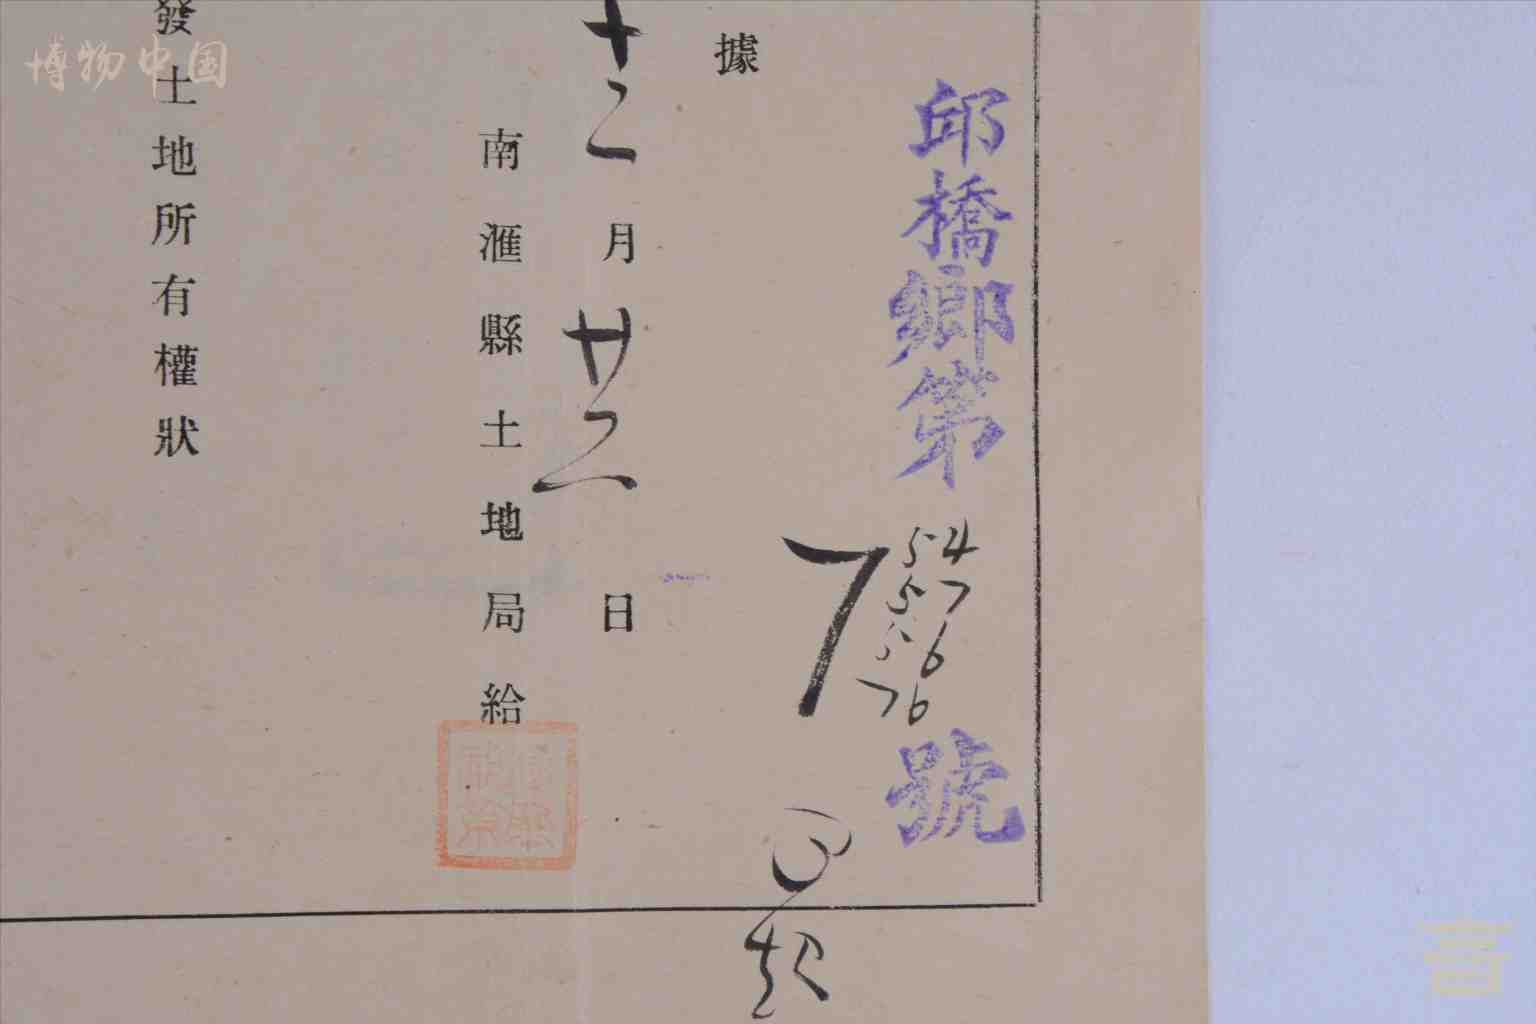 邱橋鄉第
7
54
57
56
76
號
據
十二月廿二日
南滙縣土地局給
發土地所有權狀
博物中国